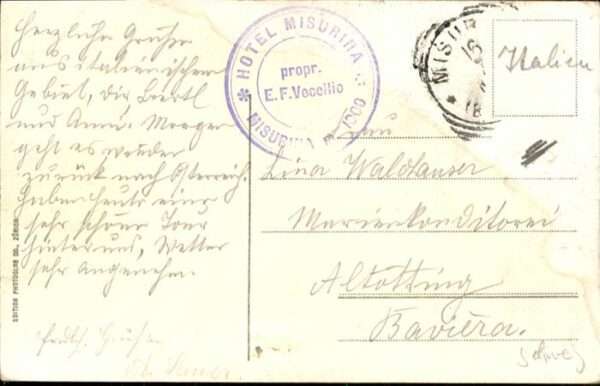 Herzliche Grüße
aus italienischem
Gebiet, dir Bertl
und Anna. Morgen
geht es wieder
zurück nach Österreich.
Haben heute eine
sehr schöne Tour
hinter uns, Wetter
sehr angenehm.
EDITION PHOTOGLOB CO., ZÜRICH
HOTEL MISURINA
propr.
E. F. Vecellio
MISURINA
MISUR
Italien
Lina Waldhauser
Marienkonditorei
Altötting
Baviera.